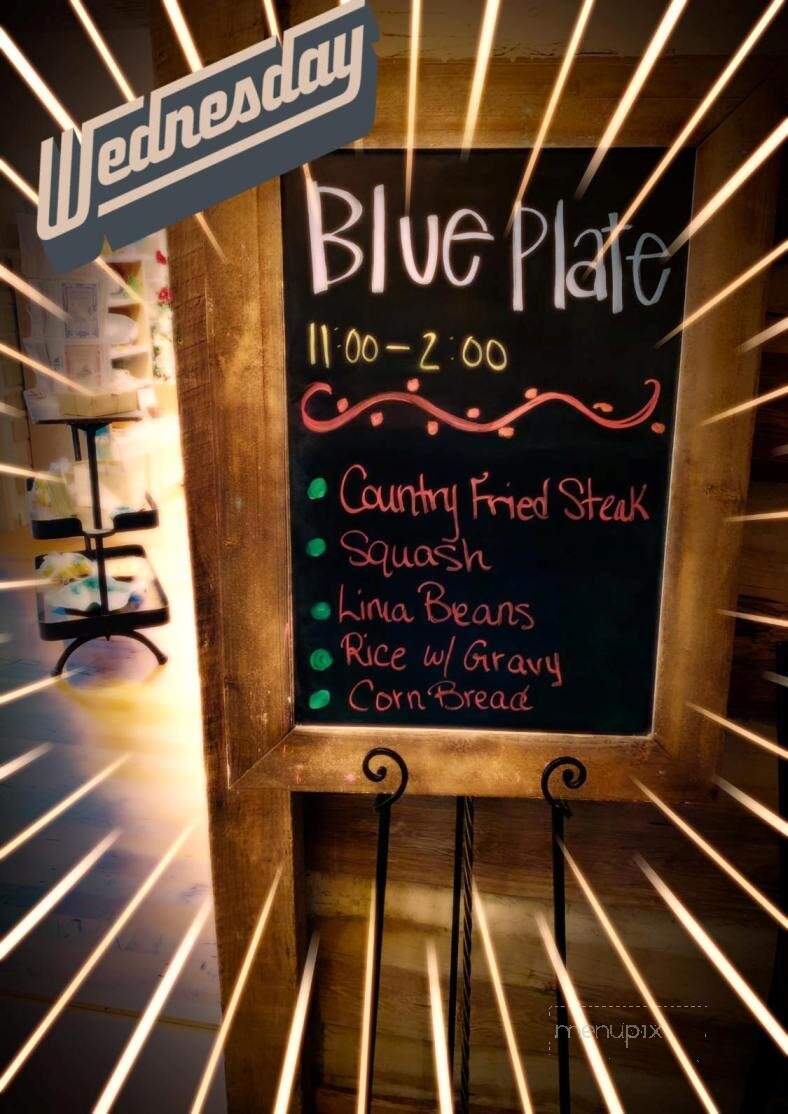 Wednesday
Blue Plate
11:00-2:00
Country Fried Steak
Squash
Lima Beans
Rice w/ Gravy
Corn Bread
menupix